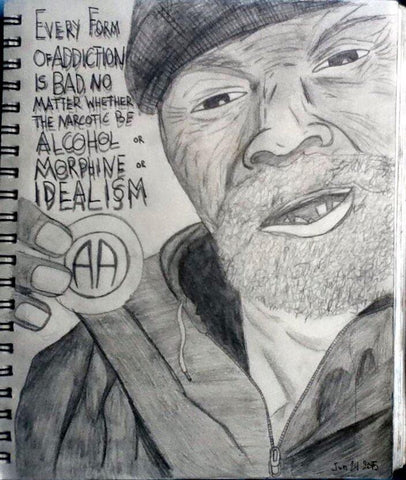 EVERY FORM
OF ADDICTION
IS BAD, NO
MATTER WHETHER
THE NARCOTIC BE
ALCOHOL OR
MORPHINE OR
IDEALISM
AA
Jun 21 2015